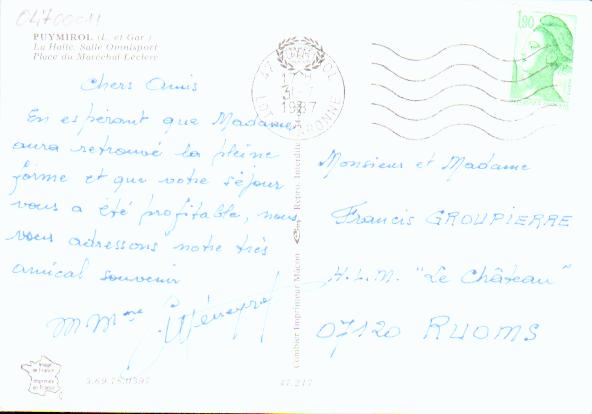 04700011
PUYMIROL (L. et Gar.)
La Halle, Salle Omnisport
Place du Maréchal Leclerc
1,80
17H
31-7
1987
LOT GARONNE
Chers Amis
En espérant que Madame
aura retrouvé la pleine
forme et que votre séjour
vous a été profitable, nous
vous adressons notre très
amical souvenir
M Mme
Monsieur et Madame
Francis GROUPIERRE
H.L.M. "Le Château"
07120 RUOMS
Combier Imprimeur Macon
Repro. Interdite
Image de France
imprimée en France
47.217